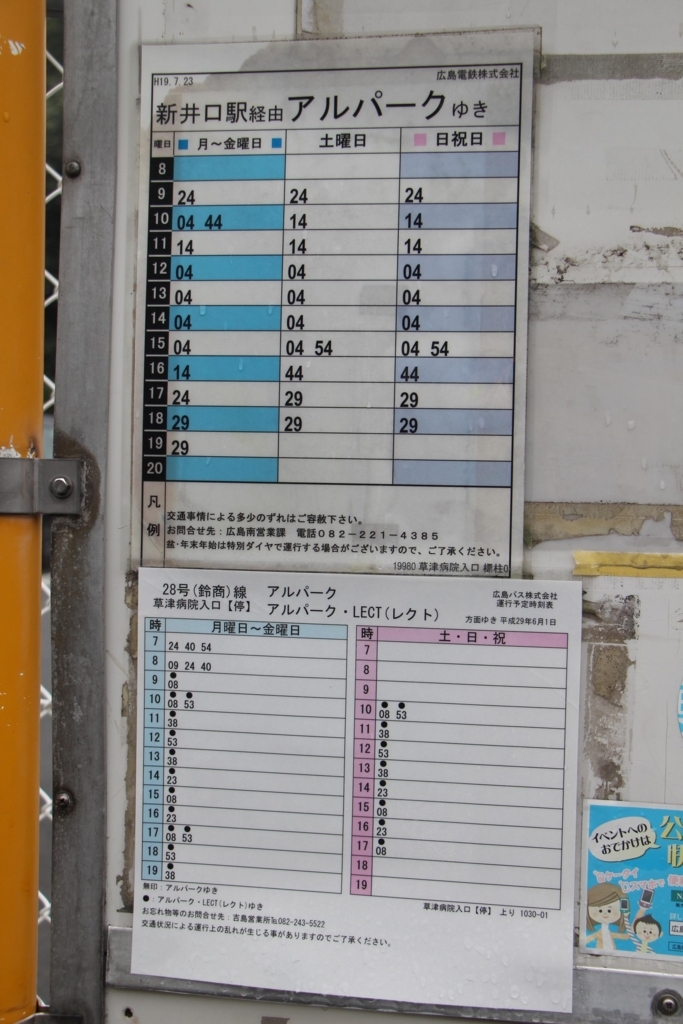 H19. 7. 23
広島電鉄株式会社
新井口駅経由アルパークゆき
曜日 ■ 月〜金曜日 ■ 土曜日 ■ 日祝日 ■
8
9 24 24 24
10 04 44 14 14
11 14 14 14
12 04 04 04
13 04 04 04
14 04 04 04
15 04 04 54 04 54
16 14 44 44
17 24 29 29
18 29 29 29
19 29
20
凡例
交通事情による多少のずれはご容赦下さい。
お問合せ先：広島南営業課 電話０８２－２２１－４３８５
盆・年末年始は特別ダイヤで運行する場合がございますので、ご了承ください。
19980 草津病院入口 標柱0
28号(鈴商)線 アルパーク
広島バス株式会社
運行予定時刻表
草津病院入口【停】 アルパーク・LECT(レクト)
方面ゆき 平成29年6月1日
時 月曜日〜金曜日
7 24 40 54
8 09 24 40
9 ●08
10 ●08 ●53
11 ●38
12 ●53
13 ●38
14 ●23
15 ●08
16 ●23
17 ●08 ●53
18 ●53
19 ●38
時 土・日・祝
7
8
9
10 ●08 ●53
11 ●38
12 ●53
13 ●38
14 ●23
15 ●08
16 ●23
17 ●08
18
19
無印：アルパークゆき
●：アルパーク・LECT(レクト)ゆき
草津病院入口【停】 上り 1030-01
お忘れ物等のお問合せ先：吉島営業所℡082-243-5522
交通状況による運行上の乱れが生じる事がありますのでご了承ください。
イベントへの
おでかけは
公